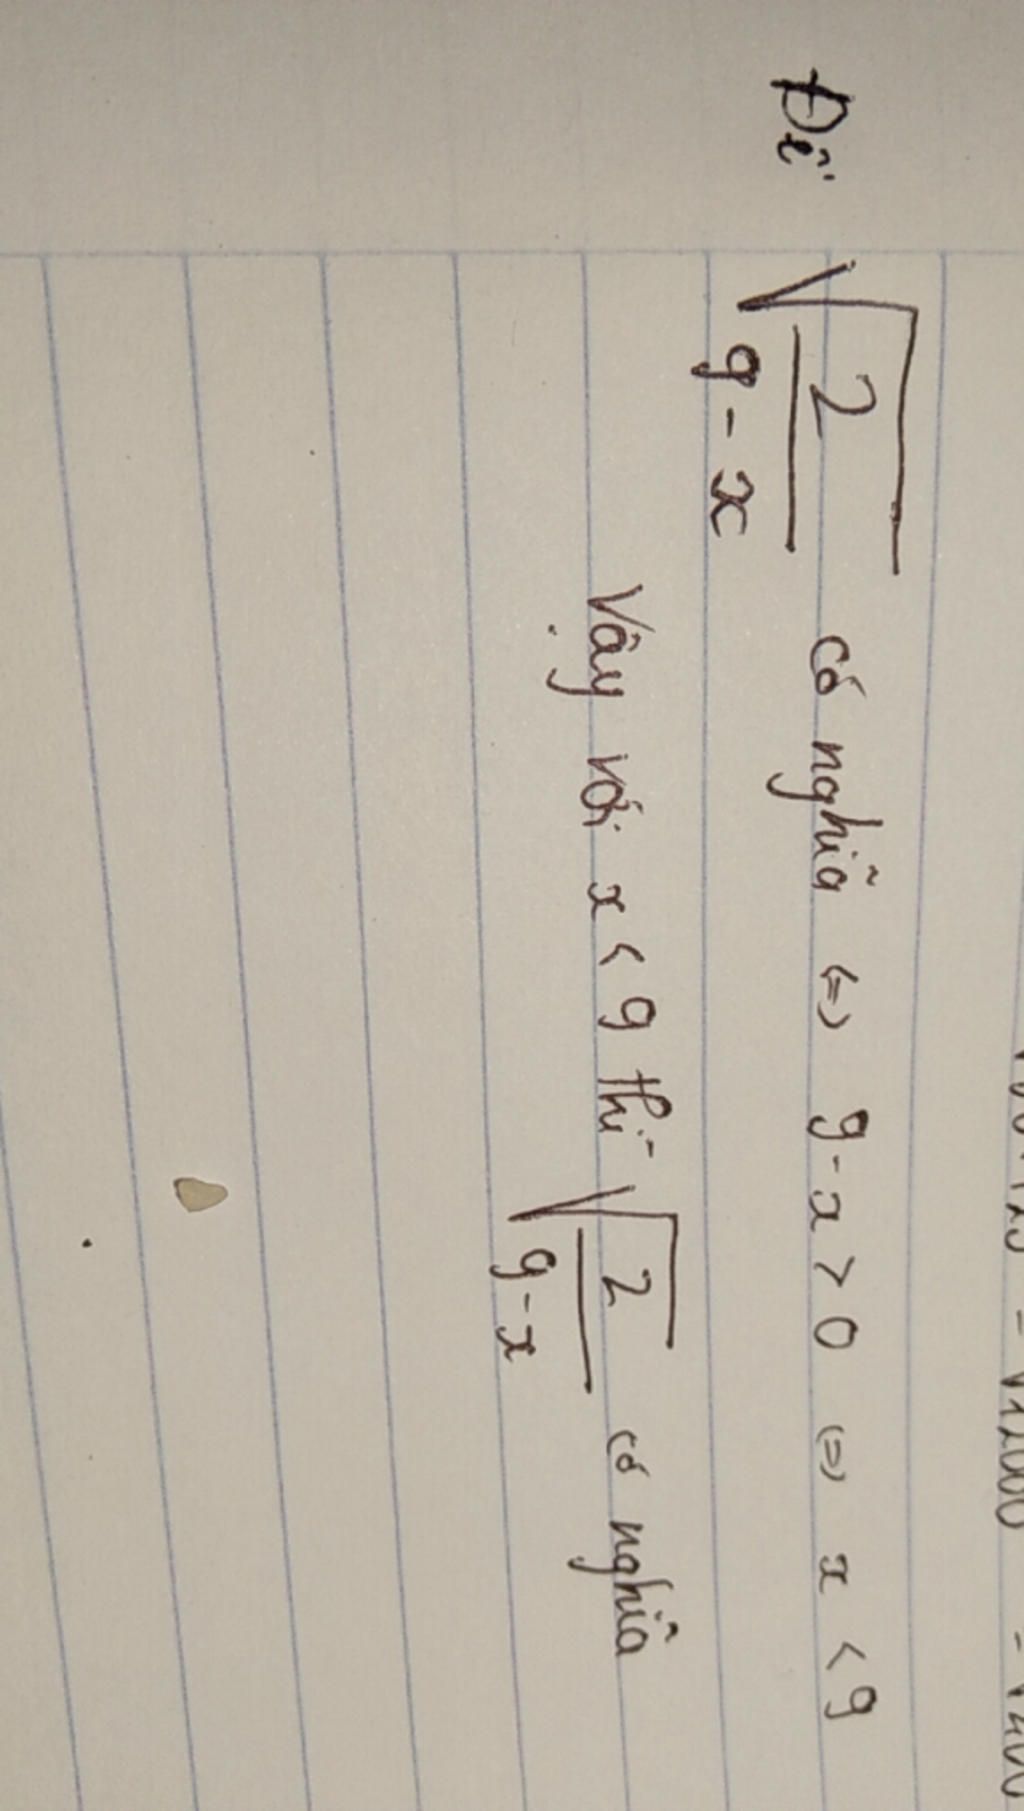 Để √(2/(9-x)) có nghĩa <=> 9-x>0 <=> x<9
Vậy với x<9 thì √(2/(9-x)) có nghĩa